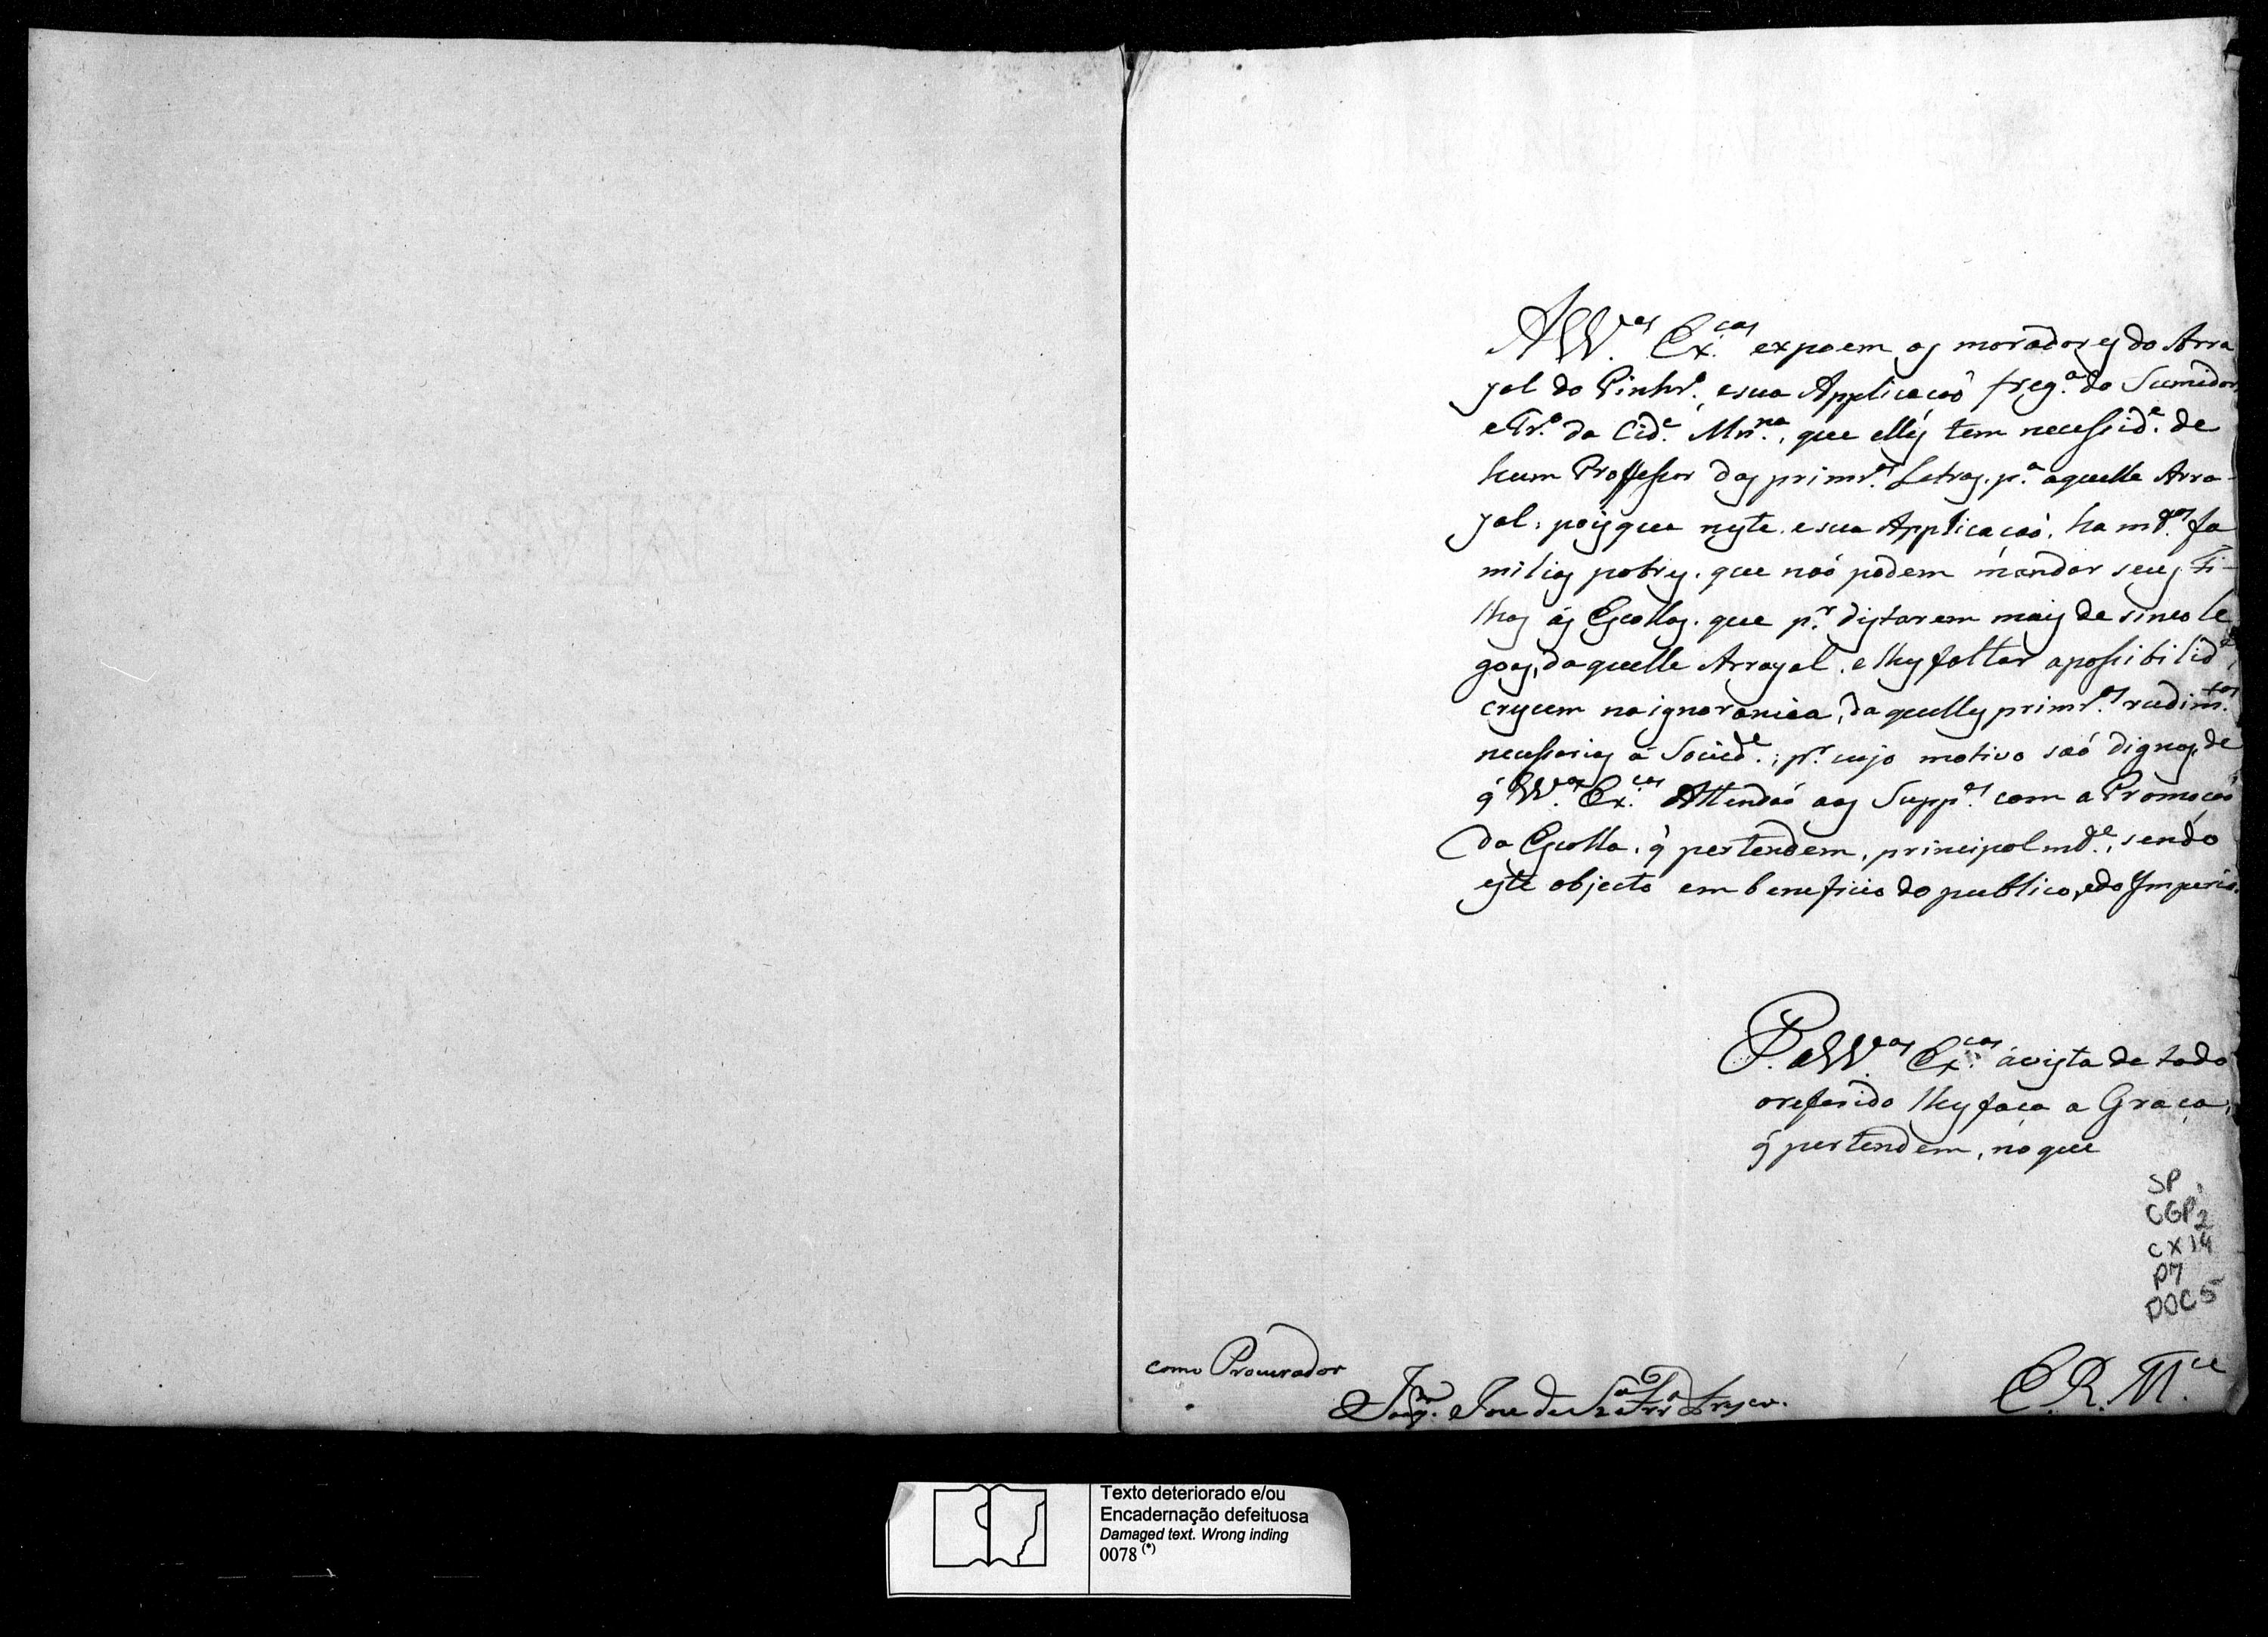 A VV.as Ex.cas expoem os moradores do Arra
yal do Pinhr.o, e sua Applicação freg.a do Sumidor
e Tr.o da Cid.e Mn.na, que elles tem necessid.e de
hum Professor das primr.as Letras, p.a aquelle Arra-
yal; pois que neste e sua Applicação, ha mt.as fa
milias pobres, que não podem mandar seus Fi-
lhos ás Escollas, que p.r distarem mais de sinco le
goas, daquelle Arrayal, e lhes faltar a possibilid.e,
crescem na ignorancia, daquelles primr.os rudim.tos
necessarios á Socied.e; p.r cujo motivo são dignos, de
q̃ VV.as Ex.cas Attendão aos Supp.es com a Promoção
da Escolla, q̃ pertendem, principalmt.e, sendo
este objecto em beneficio do publico, e do Imperio.
P. a VV.as Ex.cas á vista de todo
o referido lhes faça a Graça,
q̃ pertendem, no que
SP
CGP2
CX14
P7
DOC5
como Procurador
E. R. M.ce
Joaq.m Joze de
Texto deteriorado e/ou
Encadernação defeituosa
Damaged text. Wrong inding
0078 (*)